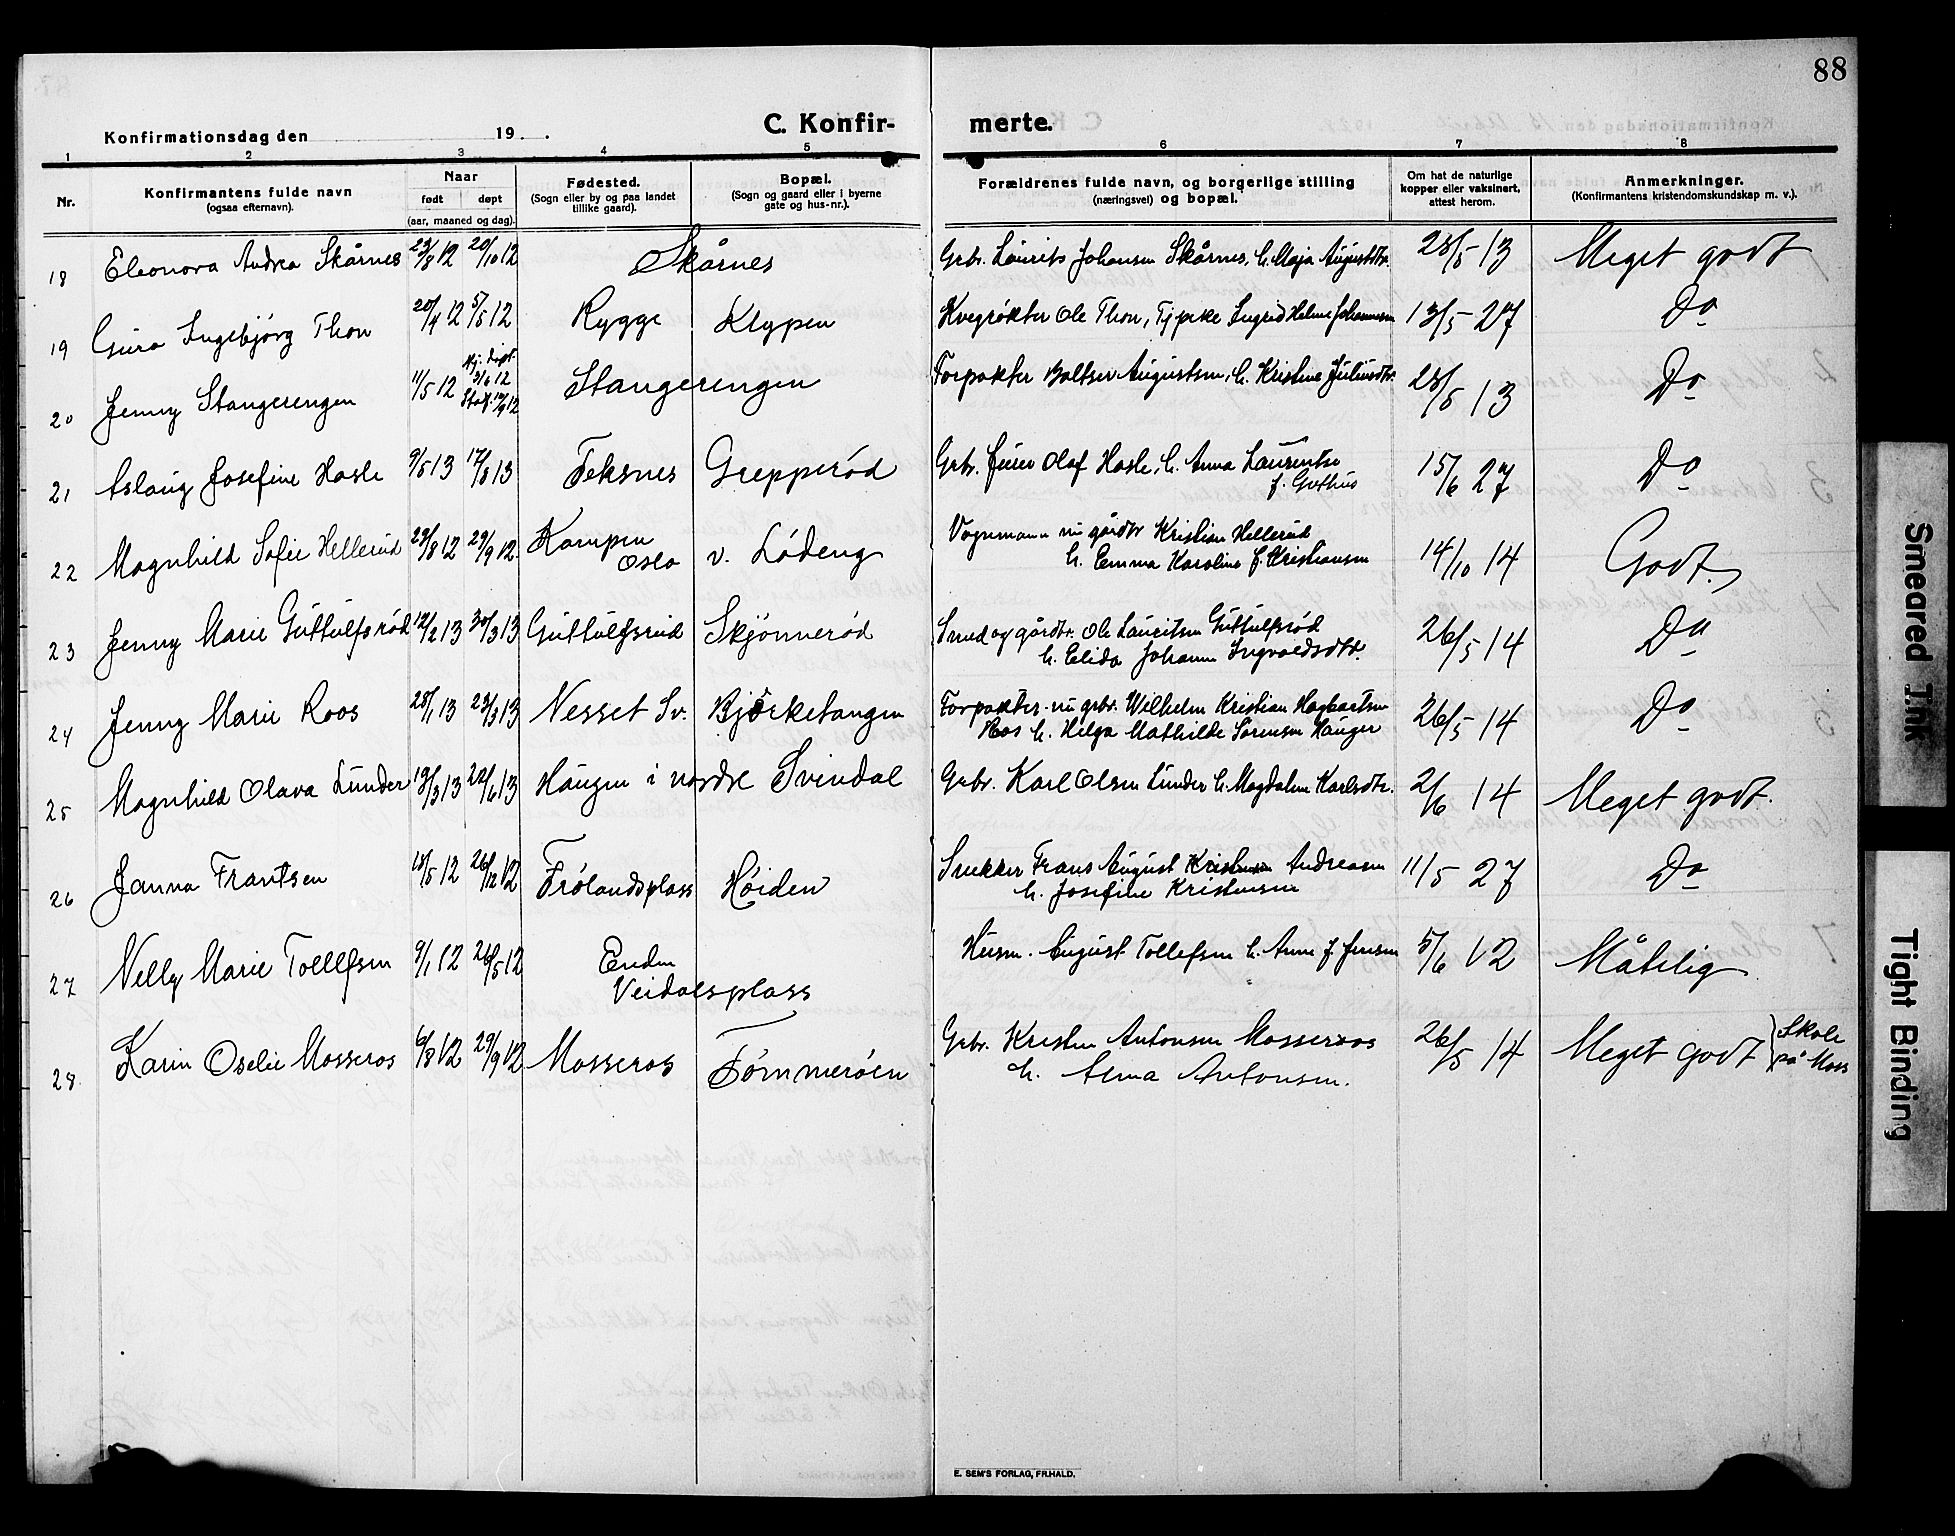 88
Konfirmationsdag den 19 .
C. Konfir- merte.
1 2 3 4 5 6 7 8
Nr. Konfirmantens fulde navn (ogsaa efternavn). Naar født døpt (aar, maaned og dag). Fødested. (Sogn eller by og paa landet tillike gaard). Bopæl. (Sogn og gaard eller i byerne gate og hus-nr.). Forældrenes fulde navn, og borgerlige stilling (næringsvei) og bopæl. Om hat de naturlige kopper eller vaksinert, attest herom. Anmerkninger. (Konfirmantens kristendomskundskap m. v.).
18 Eleonora Andrea Skårnes 23/8 12 20/10 12 Skårnes Grbr. Laurits Johansen Skårnes, h. Maja Augustdtr. 28/5 13 Meget godt
19 Guro Ingebjørg Thon 20/4 12 5/5 12 Rygge Klypen Kvegrøkter Ole Thon, Tjprke Ingrid Helene Johannesen 13/5 27 Do
20 Jenny Stangerengen 11/5 12 hj. døpt 3/6 12 Stad. 10/9 12 Stangerengen Forpakter Baltser Augustsen, h. Kristine Juliusdtr. 28/5 13 Do
21 Aslaug Josefine Hasle 9/5 13 17/8 13 Teksnes Grepperød Grbr. feier Olaf Hasle, h. Anna Laurentse
f. Guthus 15/6 27 Do
22 Magnhild Sofie Hellerud 29/8 12 29/9 12 Kampen
Oslo v. Lødeng Vognmann nu gårdbr Kristian Hellerud
h. Emma Karoline f. Kristiansen 14/10 14 Godt
23 Jenny Marie Guttulfsrød 12/2 13 30/3 13 Guttulfsrud Skjønnerød Smed og gårdbr. Ole Lauritsen Guttulfsrød
h. Elida Johanne Ingvoldsdtr. 26/5 14 Do
24 Jenny Marie Roos 28/1 13 23/3 13 Nesset Sv. Bjørketangen Forpakter nu grbr. Wilhelm Kristian Hagbartsen
Roos h. Helga Mathilde Sørensen Hauger 26/5 14 Do
25 Magnhild Olava Lunder 19/3 13 22/6 13 Haugen i nordre Svindal Grbr. Karl Olsen Lunder h. Magdalene Karlsdtr. 2/6 14 Meget godt.
26 Janna Frantsen 18/5 12 26/12 12 Frølandsplass Høiden Snekker Frans August Andreasen
h. Josefine Kristensen 11/5 27 Do
27 Nelly Marie Tollefsen 9/1 12 26/5 12 Enden
Veidalsplass Husm. August Tollefsen h. Anne f. Jensen 5/6 12 Måtelig
28 Karin Oselie Mosseros 6/8 12 29/9 12 Mosseros Tømmerøen Grbr. Kristen Antonsen Mosseros
h. Alma Antonsen. 26/5 14 Meget godt } Skole
på Moss
E. SEM'S FORLAG, FR.HALD.
Smeared Ink
Tight Binding